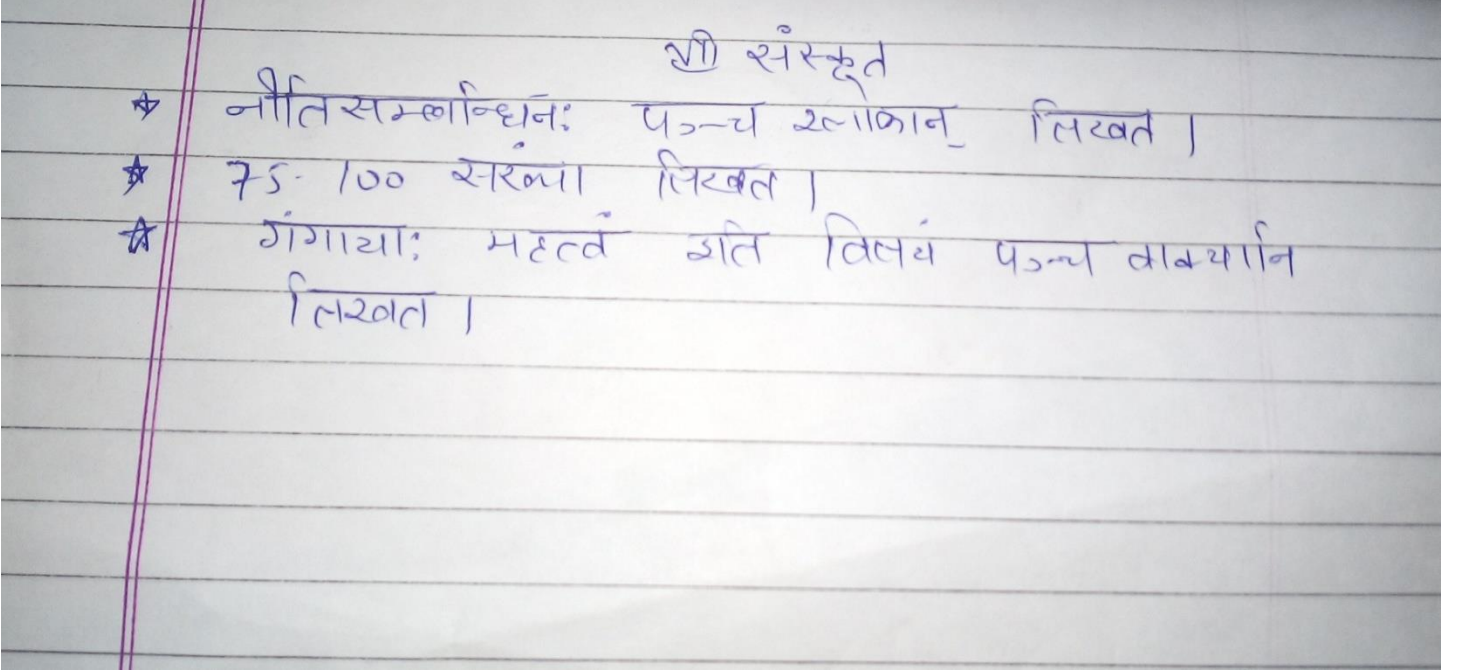 श्री संस्कृत
नीतिसम्बन्धिनः पञ्च श्लोकान् लिखत।
75-100 संख्या लिखत।
गंगायाः महत्वं इति विषयं पञ्च वाक्यानि
लिखत।